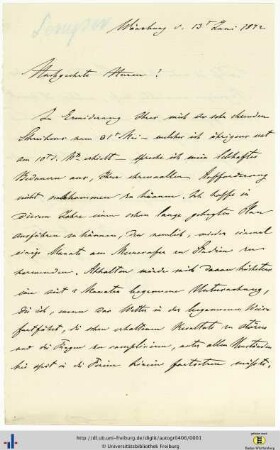 Semper
Würzburg d. 13ᵗ Juni 1872
Hochgeehrte Herren!
In Erwiderung Ihres mich so sehr ehrenden
Schreibens vom 31ᵗ Mai — welches ich übrigens erst
am 10 d. M. erhielt — spreche ich mein lebhaftes
Bedauern aus, Ihrer ehrenvollen Aufforderung
nicht nachkommen zu können. Ich hoffe in
diesem Jahre einen schon lange gehegten Plan
ausführen zu können, den nemlich, wieder einmal
einige Monate am Meeresufer in
zuzubringen. Abhalten würde mich davon höchstens
eine seit 2 Monaten begonnene Untersuchung,
die ich, wenn das Wetter in der begonnenen Weise
fortfährt, die schon erhaltenen Resultate zu stören
und die Fragen zu compliciren, unter allen Umständen
bis spät in die Ferien hinein fortsetzen müßte.
http://dl.ub.uni-freiburg.de/diglit/autogr0400/0001
© Universitätsbibliothek Freiburg